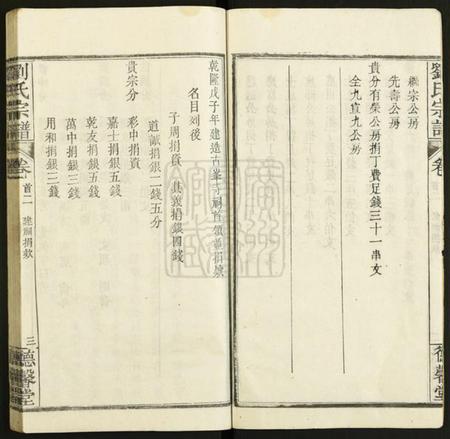 劉氏宗譜
卷
德馨堂
繼宗公房
先壽公房
貴分有榮公房捐丁費足錢三十一串文
全九寅九公房
乾隆戊子年建造古峯寺祠首領並捐數
名目列後
子周捐資 其義捐銀四錢
道獻捐銀二錢五分
貴宗分
彩中捐資
嘉士捐銀五錢
乾友捐銀五錢
萬中捐銀三錢
用和捐銀三錢
劉氏宗譜
卷首二 建祠捐款
三 德馨堂